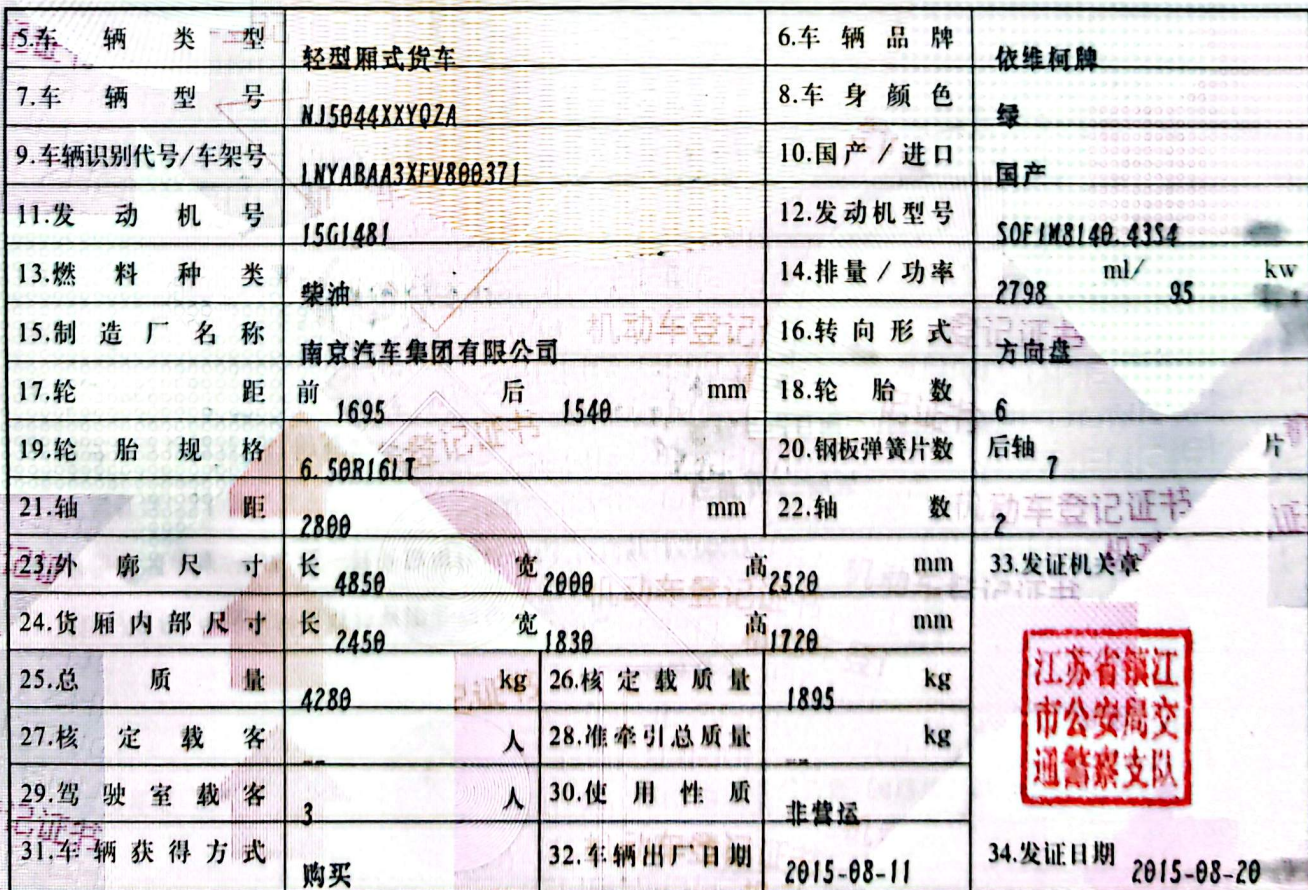 5.车辆类型 轻型厢式货车 6.车辆品牌 依维柯牌
7.车辆型号 NJ5044XXYQZA 8.车身颜色 绿
9.车辆识别代号/车架号 LNYABAA3XFV800371 10.国产/进口 国产
11.发动机号 15G1481 12.发动机型号 SOFIM8140.43S4
13.燃料种类 柴油 14.排量/功率 2798 ml/ 95 kw
15.制造厂名称 南京汽车集团有限公司 16.转向形式 方向盘
17.轮距 前 1695 后 1540 mm 18.轮胎数 6
19.轮胎规格 6.50R16LT 20.钢板弹簧片数 后轴 7 片
21.轴距 2800 mm 22.轴数 2
23.外廓尺寸 长 4850 宽 2000 高 2520 mm 33.发证机关章
24.货厢内部尺寸 长 2450 宽 1830 高 1720 mm
25.总质量 4280 kg 26.核定载质量 1895 kg
江苏省镇江
市公安局交
通警察支队
27.核定载客 -- 人 28.准牵引总质量 -- kg
29.驾驶室载客 3 人 30.使用性质 非营运
31.车辆获得方式 购买 32.车辆出厂日期 2015-08-11 34.发证日期 2015-08-20